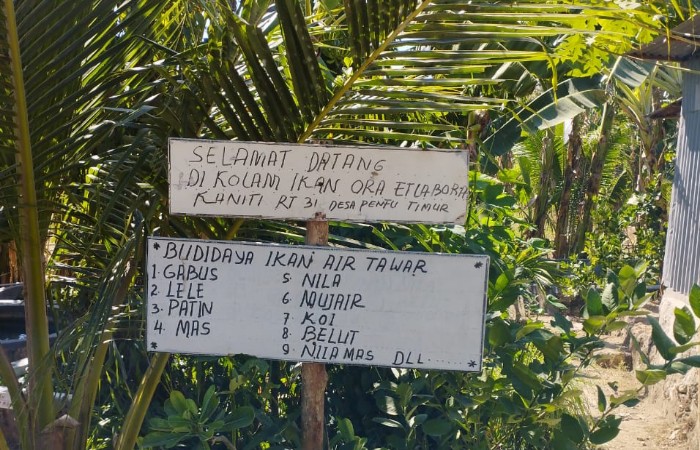 SELAMAT DATANG
DI KOLAM IKAN ORA ETLABORA
KANITI RT 31 DESA PENFU TIMUR
* BUDIDAYA IKAN AIR TAWAR *
1. GABUS
2. LELE
3. PATIN
4. MAS
5. NILA
6 MUJAIR
7 KOI
8 BELUT
* 9 NILA MAS DLL....... *